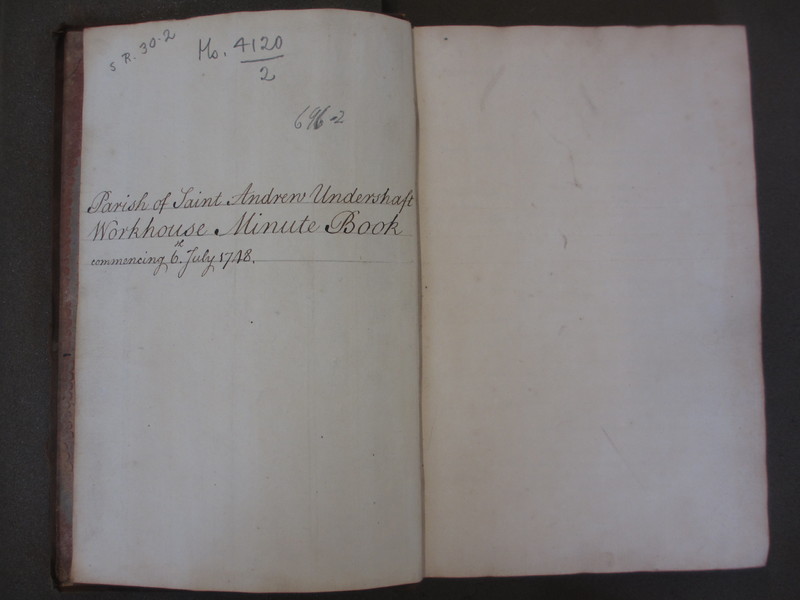 S R. 30-2
Ms. 4120
2
696-2
Parish of Saint Andrew Undershaft
Workhouse Minute Book
commencing 6th. July 1748.